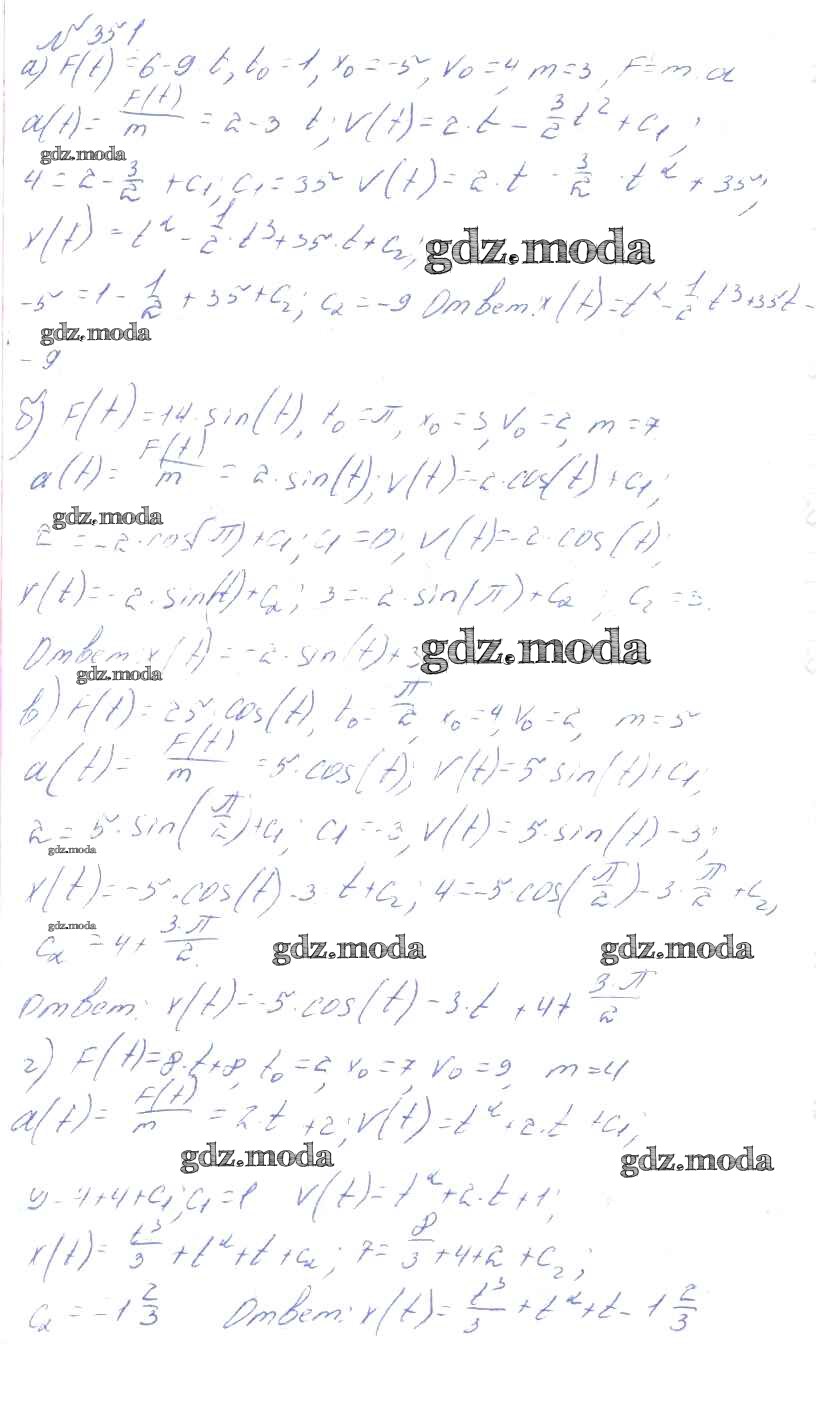 № 351
а) F(t)=6-9 t, t₀=1, x₀=-5, v₀=4, m=3, F=m·a
a(t)= F(t)/m = 2-3 t; v(t)=2·t - 3/2 t² + C₁;
gdz.moda
4=2-3/2 +C₁; C₁=3,5 v(t)=2·t - 3/2 · t² + 3,5;
x(t)=t² - 1/2·t³+3,5·t+C₂;
gdz.moda
-5=1-1/2 + 3,5+C₂; C₂=-9 Ответ: x(t)=t²-1/2 t³+3,5t-
gdz.moda
- 9
б) F(t)=14·sin(t), t₀=π, x₀=3, v₀=2, m=7
a(t)= F(t)/m = 2·sin(t); v(t)=-2·cos(t)+C₁;
gdz.moda
2=-2·cos(π)+C₁; C₁=0; v(t)=-2·cos(t);
x(t)=-2·sin(t)+C₂; 3=-2·sin(π)+C₂; C₂=3.
Ответ: x(t)=-2·sin(t)+3
gdz.moda
gdz.moda
в) F(t)=25·cos(t), t₀=π/2, x₀=4, v₀=2, m=5
a(t)= F(t)/m =5·cos(t); v(t)=5 sin(t)+C₁;
2=5·sin(π/2)+C₁; C₁=-3, v(t)=5·sin(t)-3;
gdz.moda
x(t)=-5·cos(t)-3·t+C₂; 4=-5·cos(π/2)-3·π/2+C₂,
gdz.moda
C₂=4+ 3·π/2.
gdz.moda
gdz.moda
Ответ: x(t)=-5·cos(t)-3·t +4+ 3·π/2
г) F(t)=8·t+8, t₀=2, x₀=7, v₀=9, m=4
a(t)= F(t)/m =2·t +2; v(t)=t²+2·t +C₁;
gdz.moda
gdz.moda
9=4+4+C₁; C₁=1 v(t)=t²+2·t+1;
x(t)= t³/3 +t²+t+C₂; 7=8/3+4+2+C₂;
C₂=-1 2/3 Ответ: x(t)= t³/3 +t²+t-1 2/3